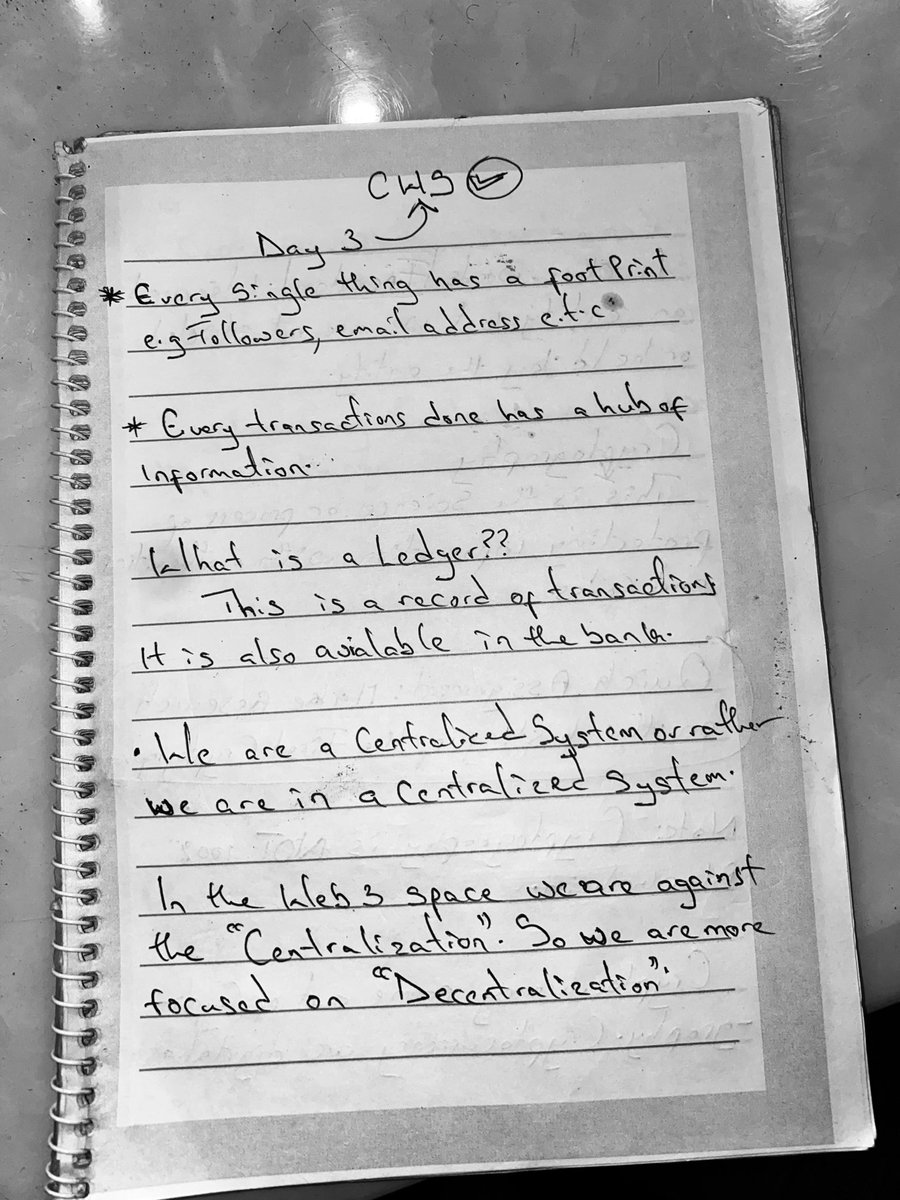 CWS
Day 3
* Every Single thing has a foot Print
e.g Followers, email address e.t.c
* Every transactions done has a hub of
Information..
What is a Ledger??
This is a record of transactions
It is also avialable in the bank.
. We are a Centralized System or rather
we are in a Centralized System.
In the Web 3 space we are against
the "Centralization". So we are more
focused on "Decentralization".